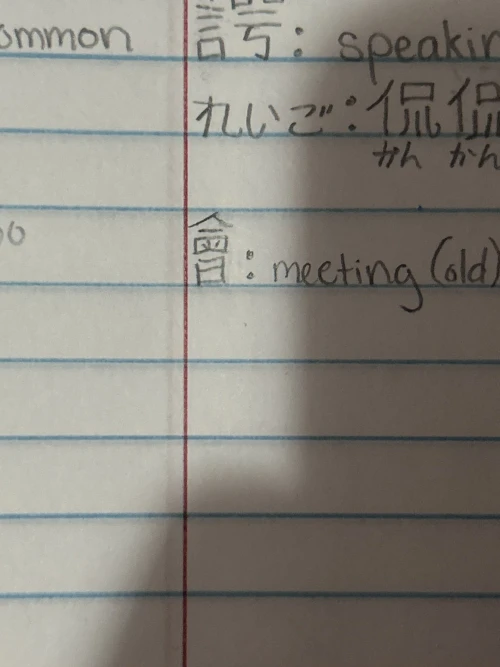 ommon 諤: speakin
れいご:侃侃
かん かん
會: meeting (old)